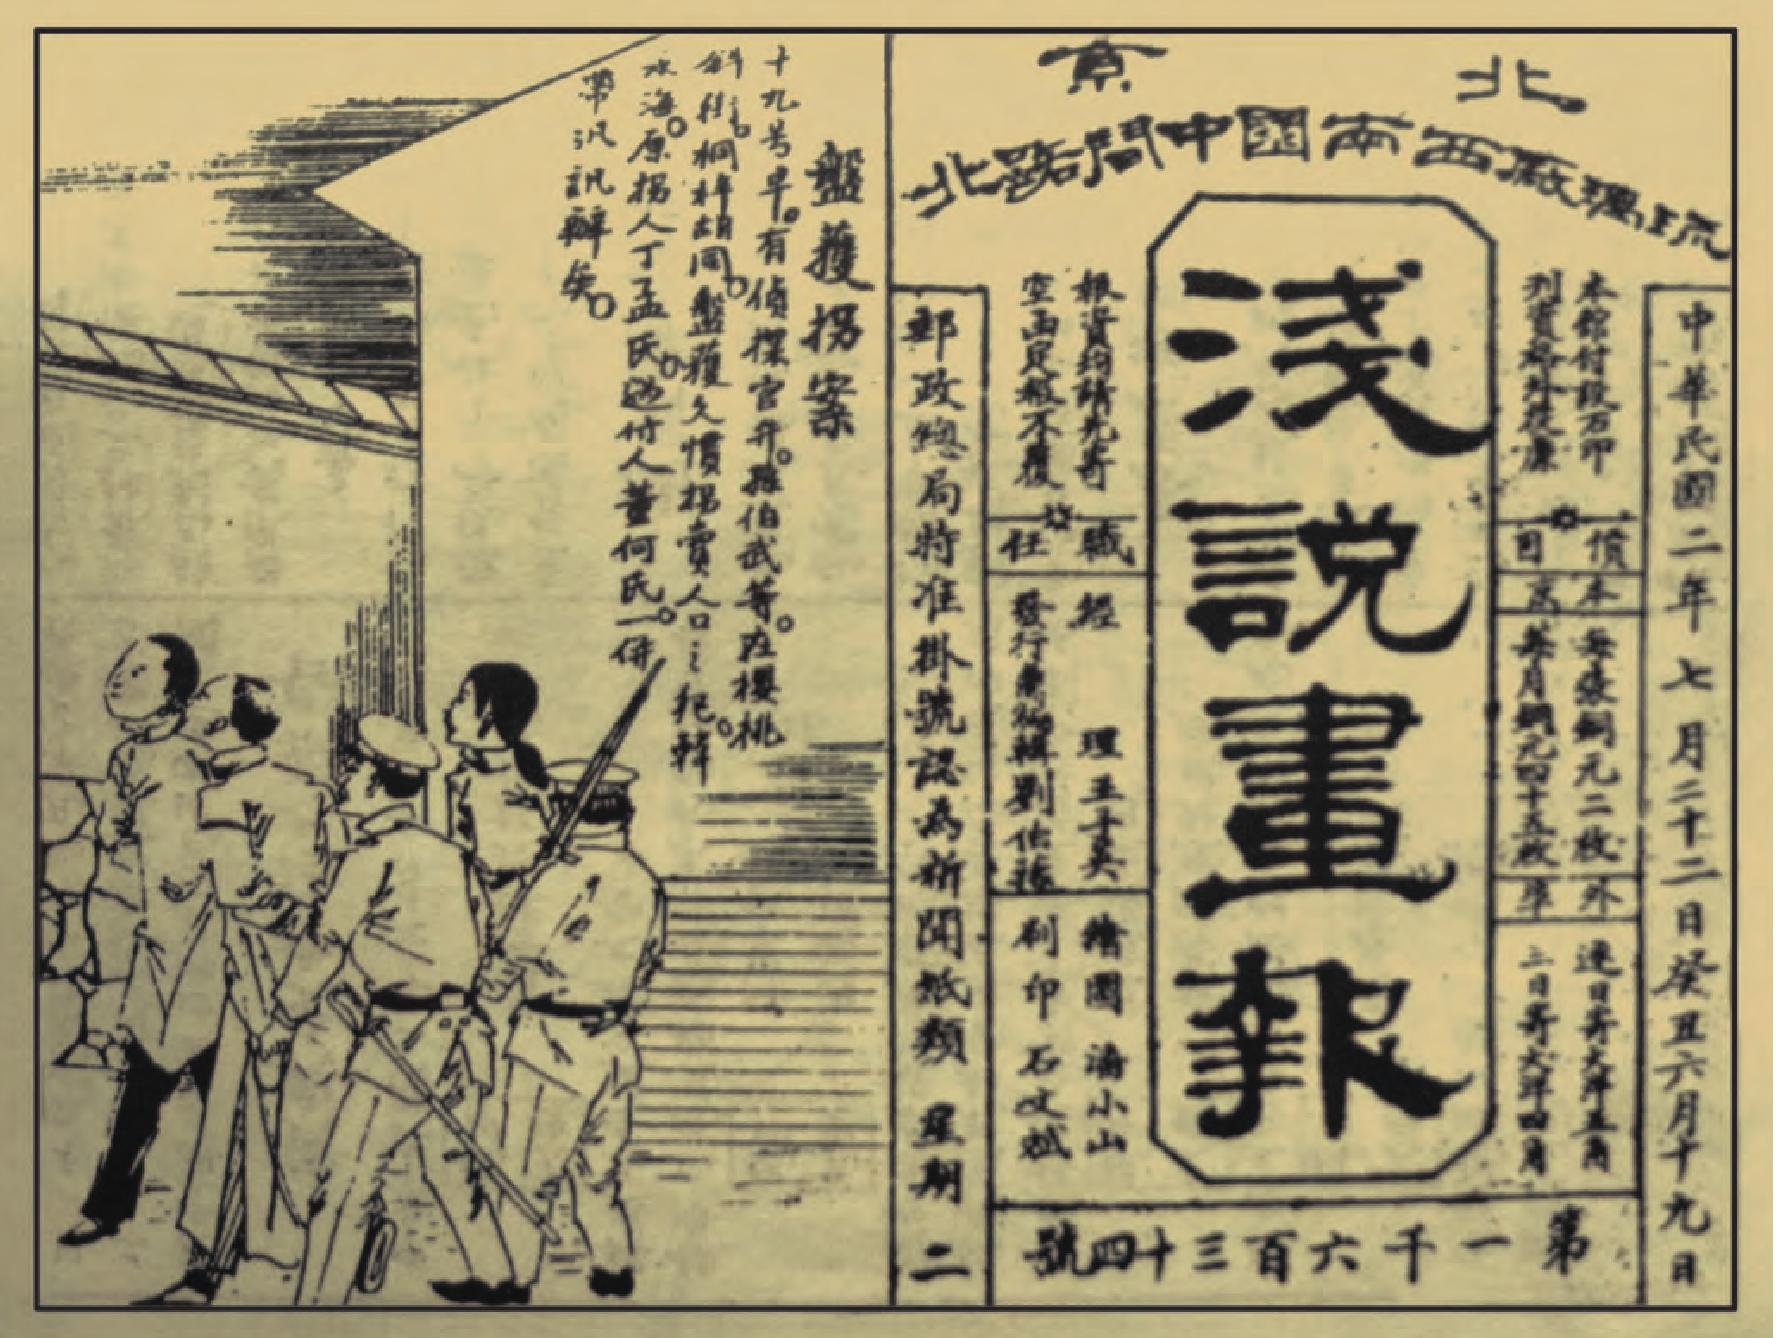 北京
琉璃廠西南園中間路北
中華民國二年七月二十二日癸丑六月十九日
本館付設石印
列資格外從廉
價目
本京
每張銅元二枚
每月銅元四十五枚
外埠
逐日寄大洋五角
三日寄大洋四角
淺說畫報
根資約請先寄
空函定報不覆
職任
經理 王子英
發行兼編輯劉佐
繪圖 海小山
刷印 石文斌
第一千六百三十四號
郵政總局特准掛號認為新聞紙類 星期二
盤獲拐案
十九号早。有偵探官弁。孫伯武等。在櫻桃
斜街之。桐梓胡同。盤獲久慣拐賣人口之犯。韓
永海。原拐人丁孟氏。過付人董何氏。一併
帶汎訊辦矣。